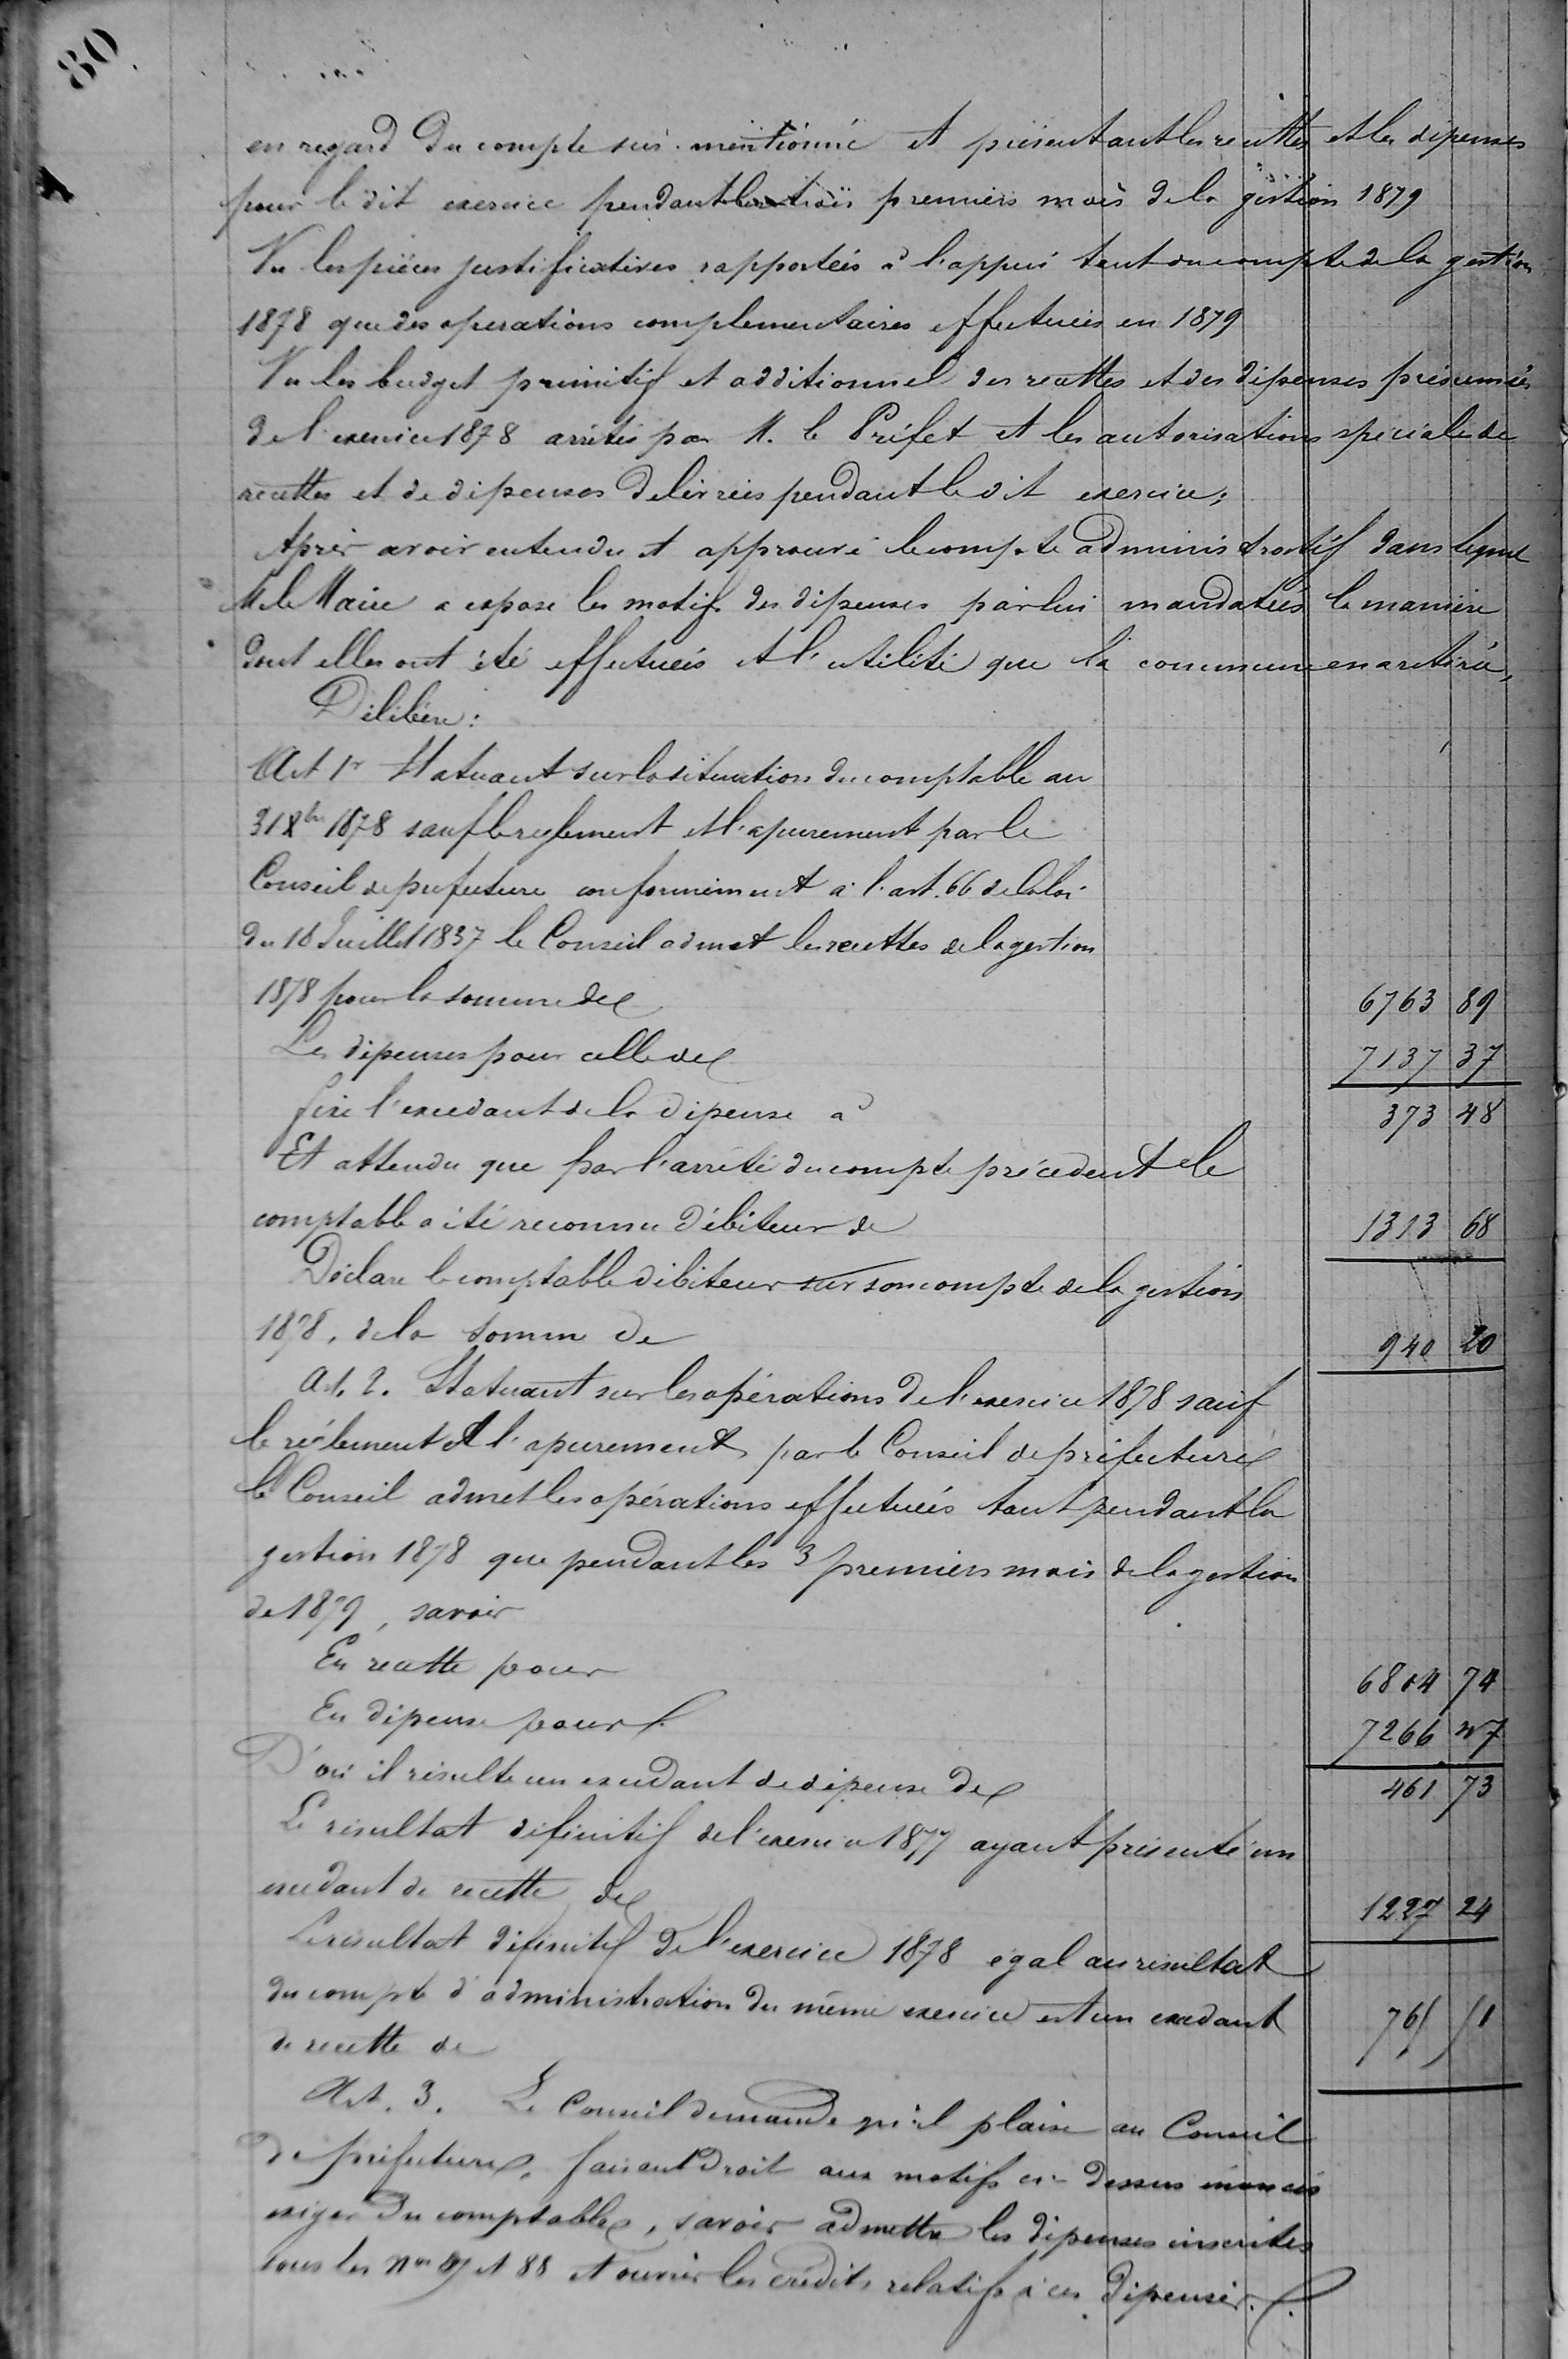 80
en regard du compte sus-mentionné et présentant les recettes et les dépenses
pour le dit exercice pendant les trois premiers mois de la gestion 1879
Vu les pièces justificatives rapportées à l'appui tant du compte de la gestion
1878 que des operations complementaires effectuées en 1879
Vu les budget primitif et additionnel des recettes et des dépenses présumées
de l'exercice 1878 arrêtés par M. le Préfet et les autorisations spéciales de
recettes et de dépenses délivrées pendant le dit exercice;
Après avoir entendu et approuvé le compte administratif dans lequel
M le Maire a exposé les motifs des dépenses par lui mandatées la manière
dont elles ont été effectuées et l'utilité que la commune en a retirée,
Délibère:
Art 1r Statuant sur la situation du comptable au
31 Xbre 1878 sauf le reglement et l'apurement par le
Conseil de prefecture conformément à l'art. 66 de la loi
du 18 Juillet 1837 le Conseil admet les recettes de la gestion
1878 pour la somme de 6763 89
Les dépenses pour celle de 7137 37
fixe l'excedant de la dépense à 373 48
Et attendu que par l'arrêté du compte précedent le
comptable a été reconnu débiteur de 1313 68
Déclare le comptable débiteur sur son compte de la gestion
1878, de la somme de 940 20
Art. 2. Statuant sur les opérations de l'exercice 1878 sauf
le réglement et l'apurement par le Conseil de préfecture
le Conseil admet les opérations effectuées tant pendant la
gestion 1878 que pendant les 3 premiers mois de la gestion
de 1879, savoir
En recette pour 6804 74
En dépense pour 7266 47
D'où il résulte un excedant de dépense de 461 73
Le résultat définitif de l'exercice 1877 ayant présenté un
excedant de recette de 1227 24
Le résultat définitif de l'exercice 1878 égal au résultat
du compte d'administration du même exercice est un excedant
de recette de 765 51
Art. 3. Le Conseil demande qu'il plaise au Conseil
de préfecture, faisant droit aux motifs ci-dessus énoncés
exiger du comptable, savoir admettre les dépenses inscrites
sous les nos et 88 et ouvrir les crédits relatifs à ces dépenses.